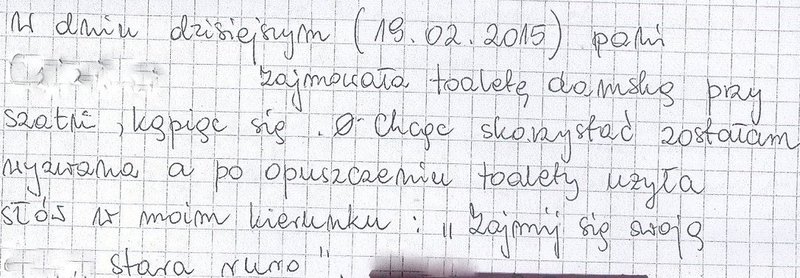 W dniu dzisiejszym (19.02.2015) pani
zajmowała toaletę damską przy
szatni, kąpiąc się. Chcąc skorzystać zostałam
wyzwana a po opuszczeniu toalety użyła
słów w moim kierunku: „Zajmij się swoją
stara ruro".